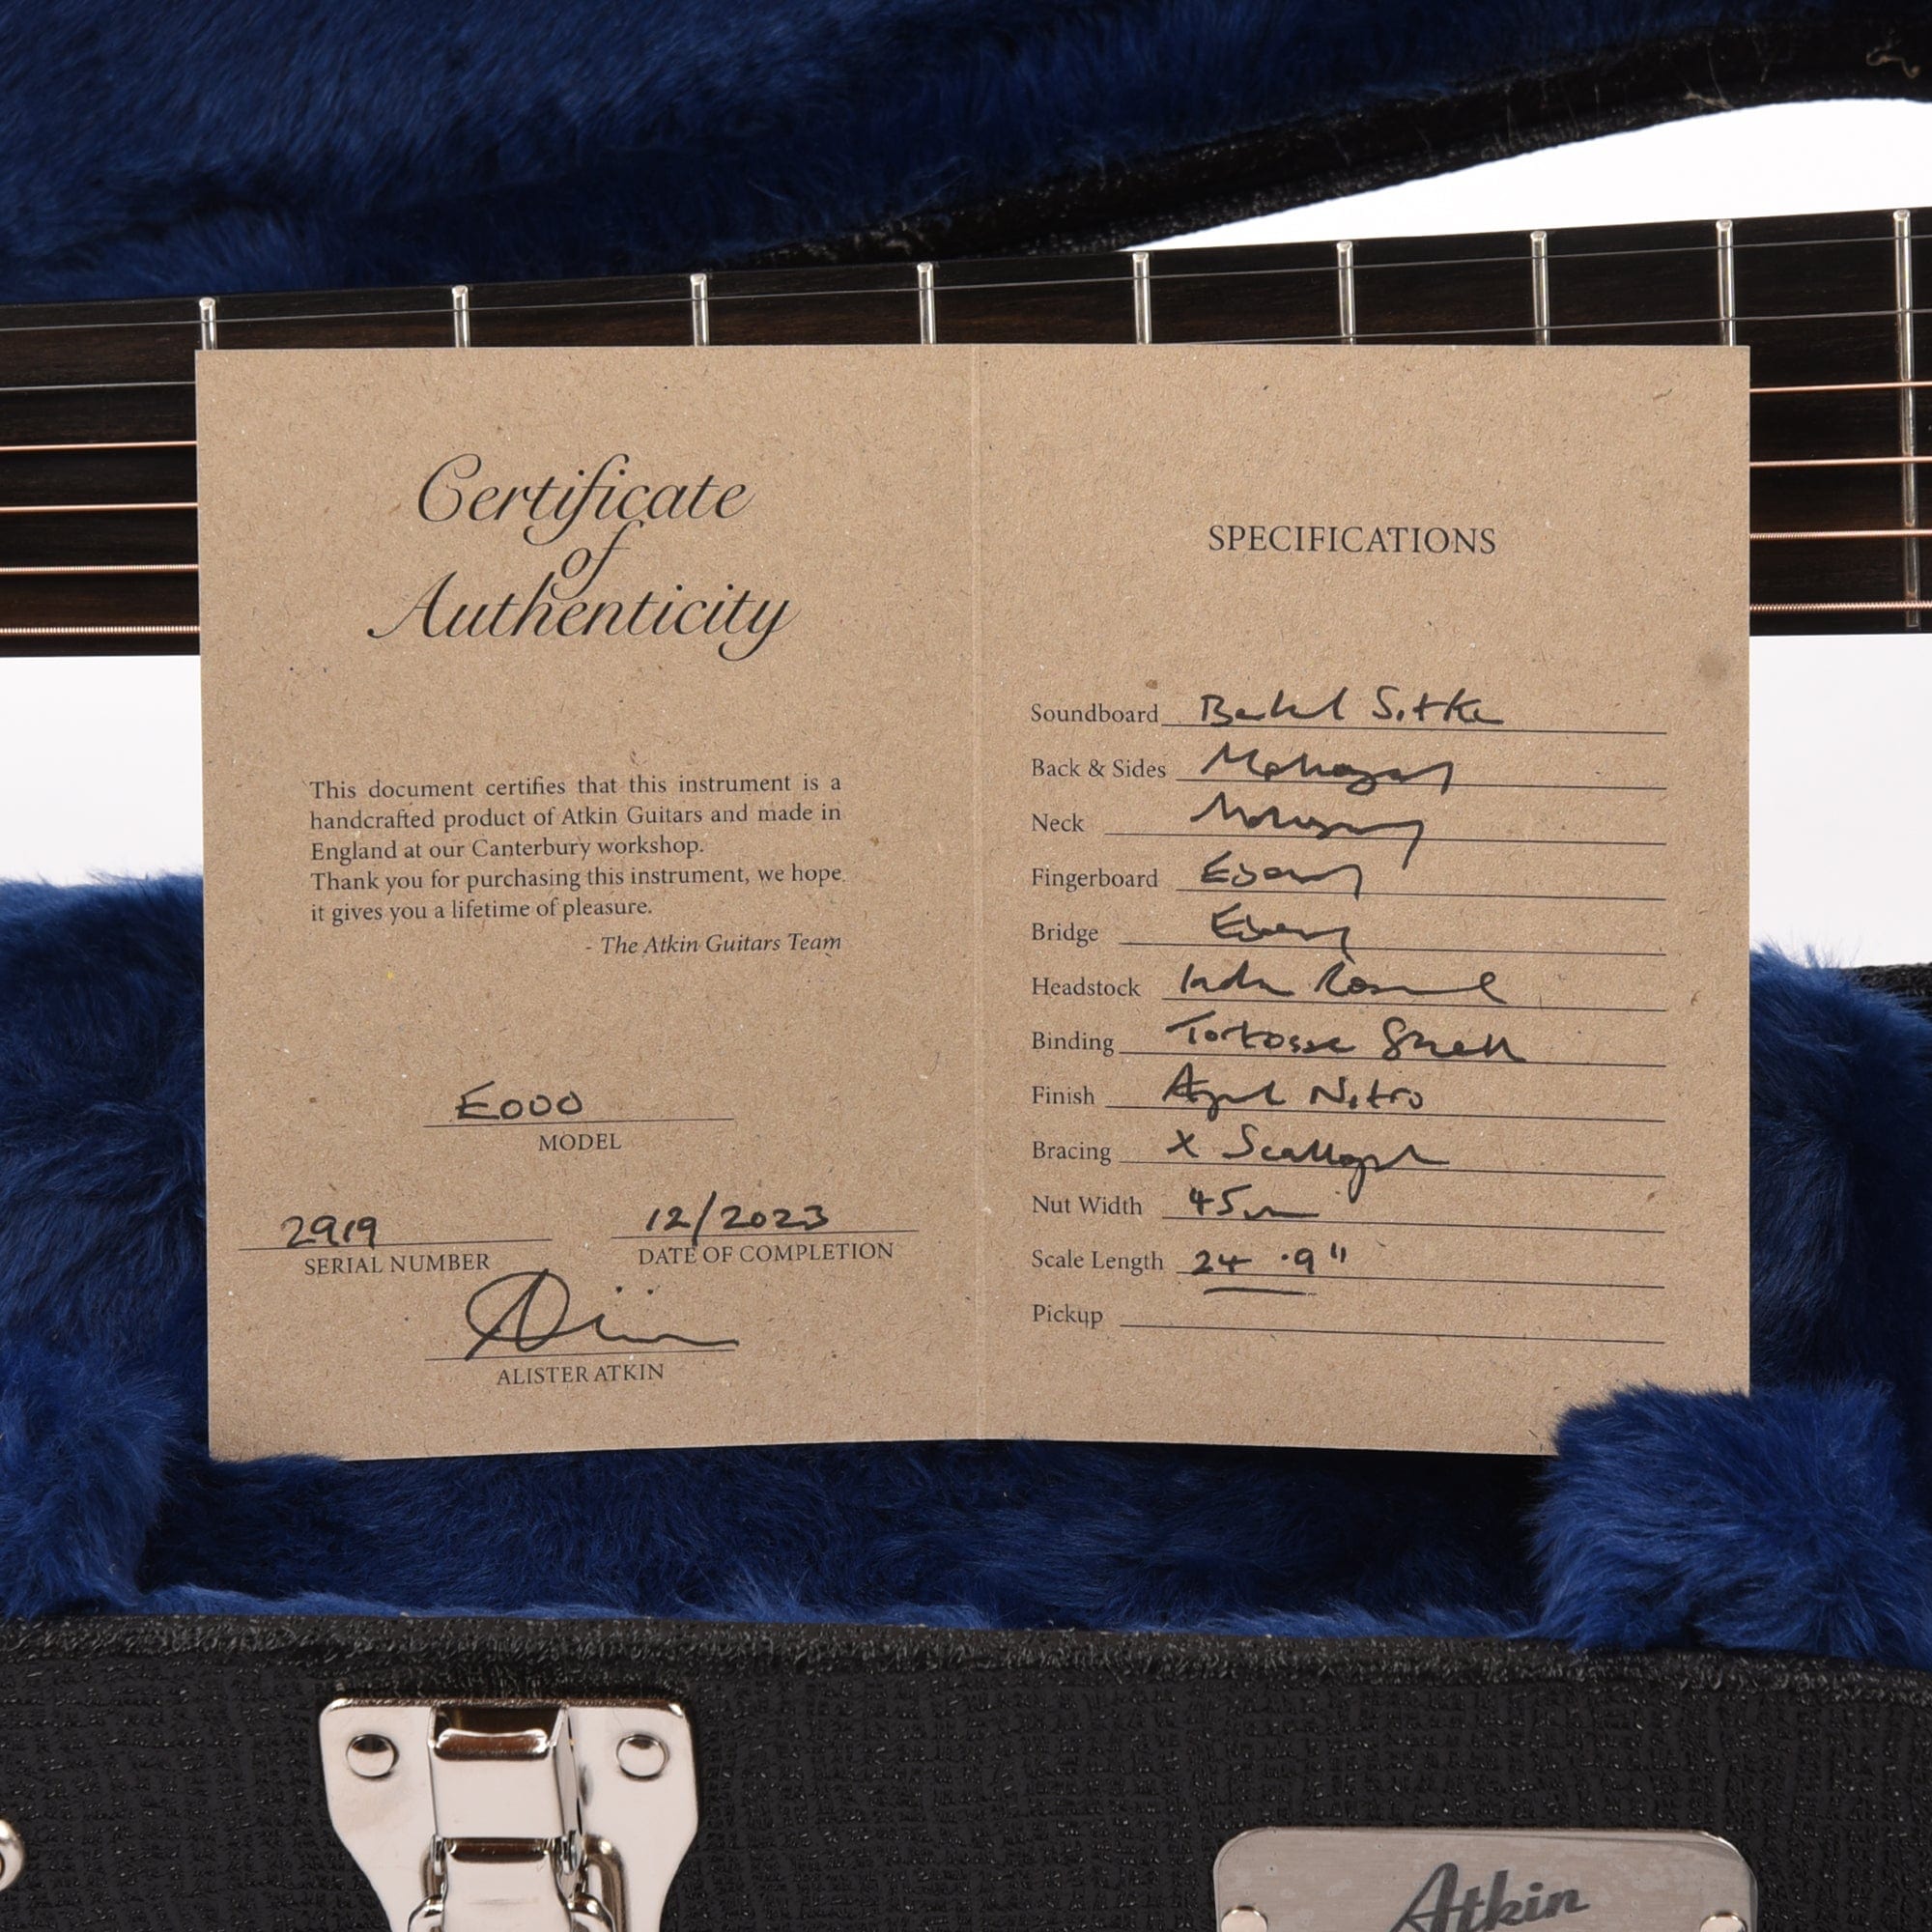 Certificate
of
Authenticity
This document certifies that this instrument is a
handcrafted product of Atkin Guitars and made in
England at our Canterbury workshop.
Thank you for purchasing this instrument, we hope
it gives you a lifetime of pleasure.
- The Atkin Guitars Team
E000
MODEL
2919
SERIAL NUMBER
12/2023
DATE OF COMPLETION
ALISTER ATKIN
SPECIFICATIONS
Soundboard Baked Sitka
Back & Sides Mahogany
Neck Mahogany
Fingerboard Ebony
Bridge Ebony
Headstock Indian Rosewood
Binding Tortoise Shell
Finish Aged Nitro
Bracing X Scalloped
Nut Width 45mm
Scale Length 24.9"
Pickup
Atkin